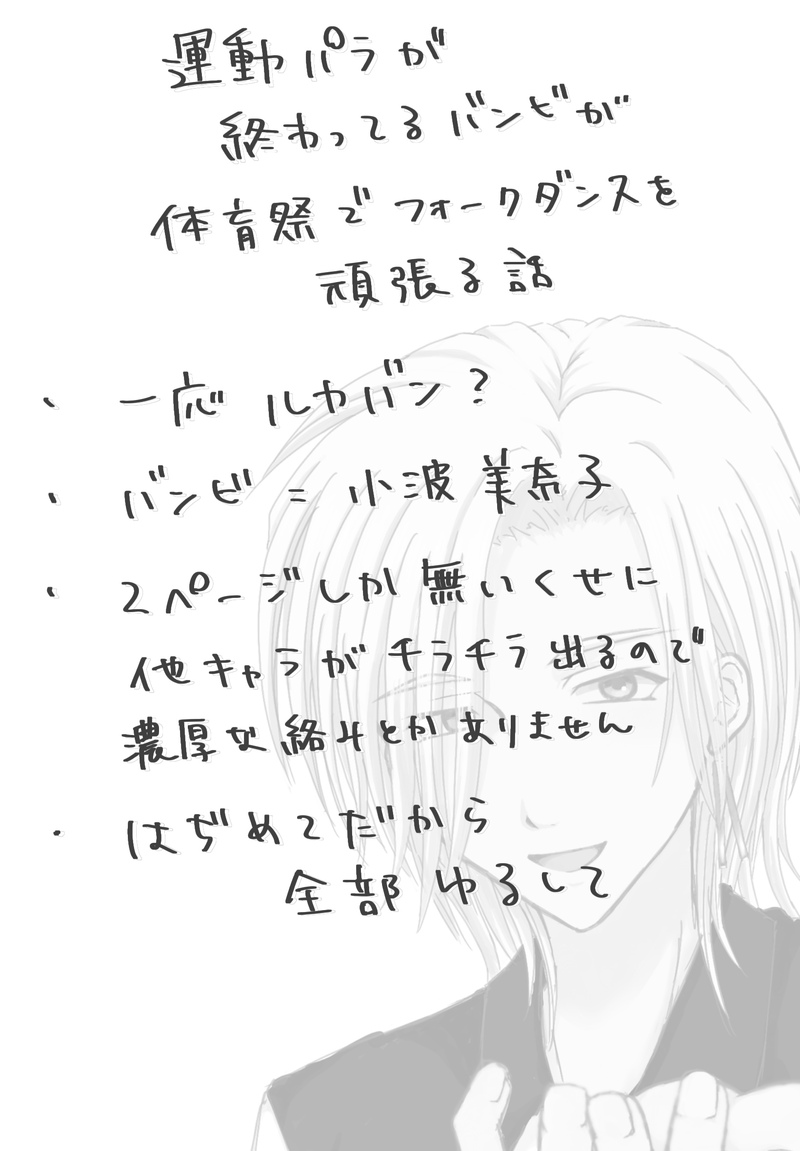 運動パラが
終わってるバンビが
体育祭でフォークダンスを
頑張る話
・ 一応 ルカバン?
・ バンビ = 小波美奈子
・ 2ページしか無いくせに
他キャラがチラチラ出るので
濃厚な絡みとかありません
・ はぢめてだから
全部ゆるして